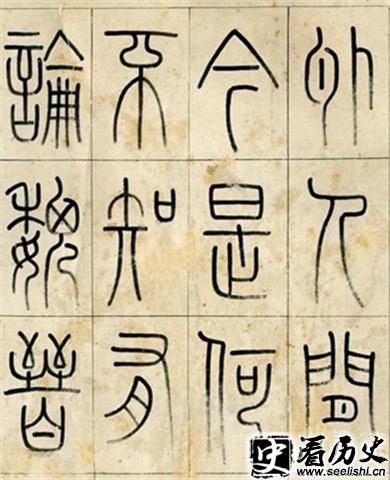 外人間
今是何
不知有
論魏晉
史看历史
www.seelishi.cn